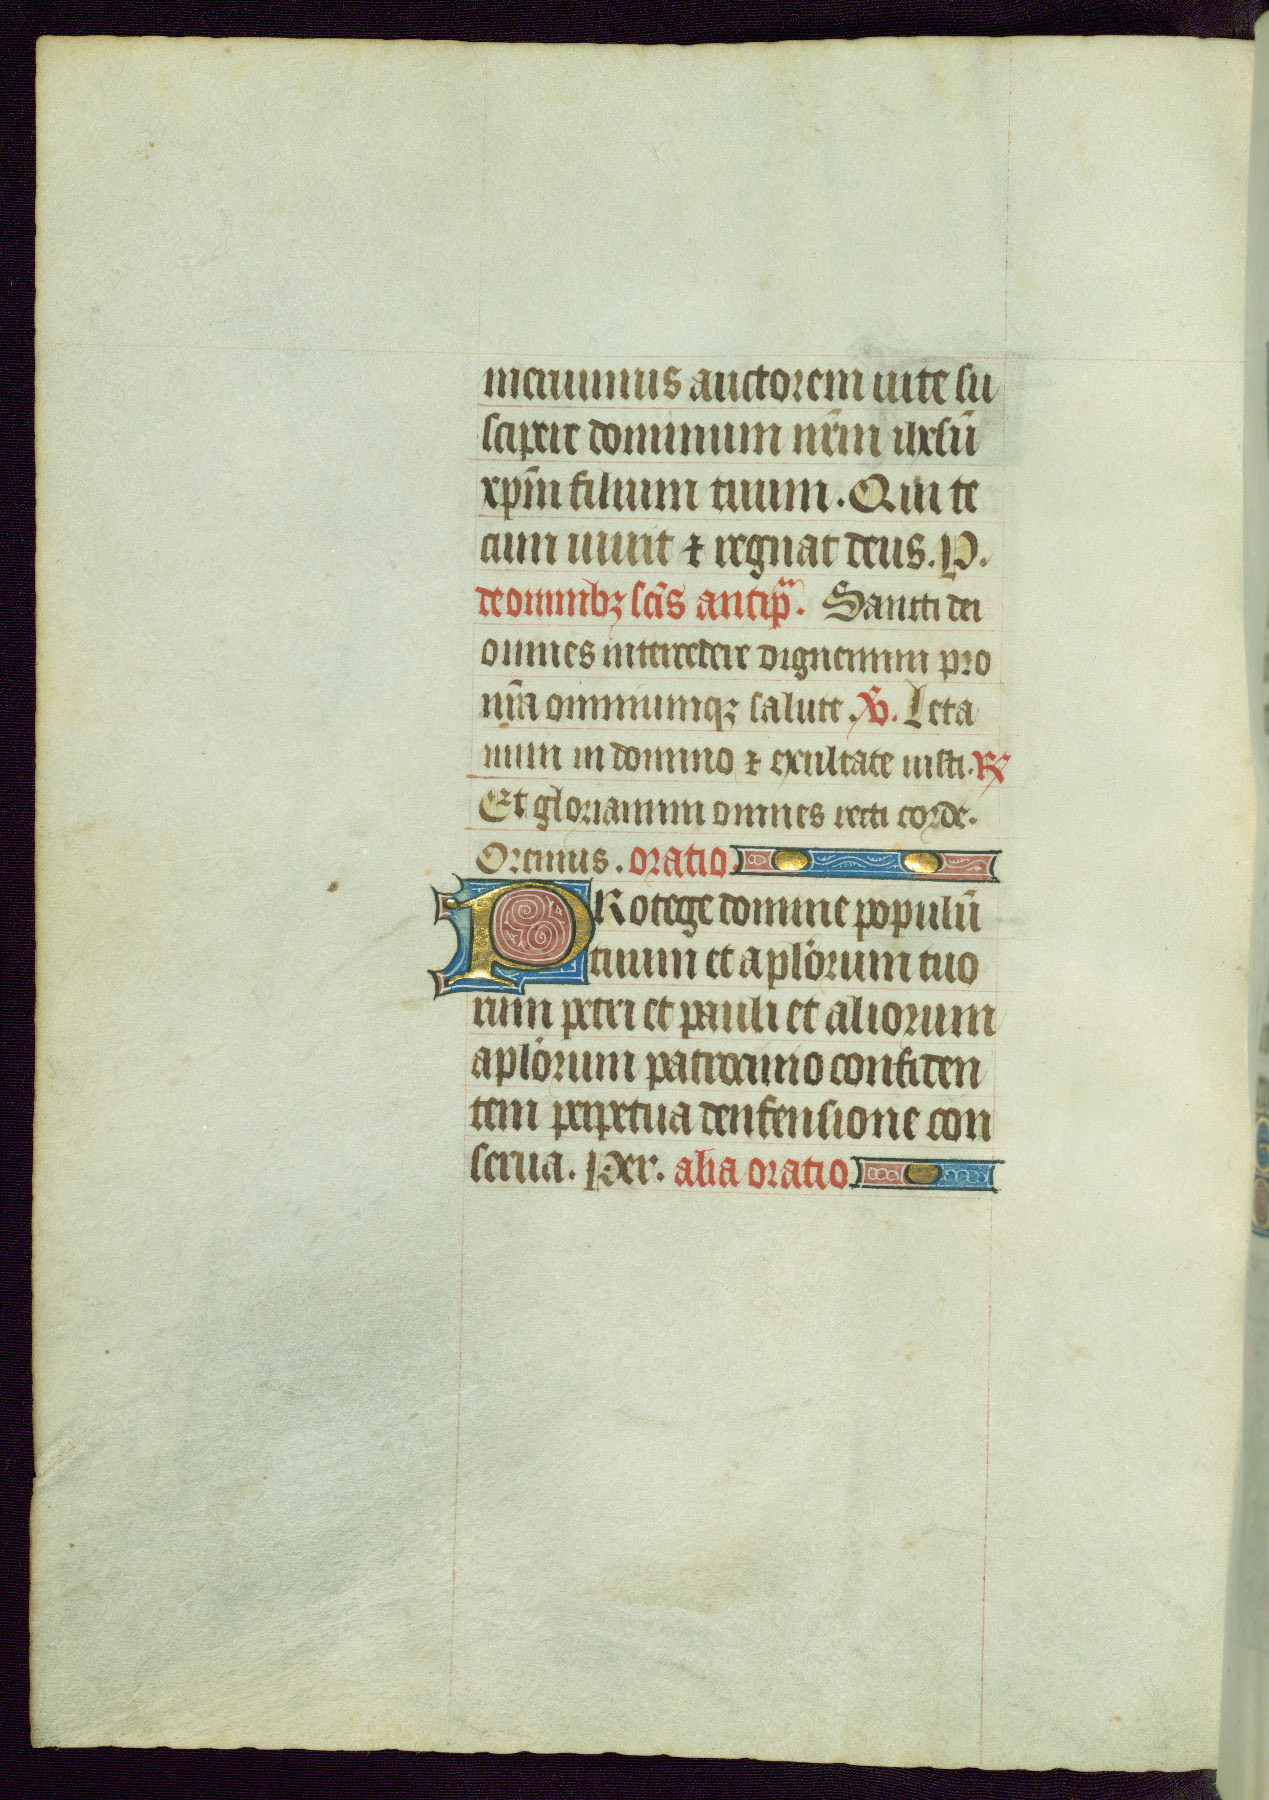 meruimus auctorem uite su
scipere dominum nr̄m ihesū
xpm̄ filium tuum. Qui te
cum uiuit ⁊ regnat deus. P.
de omnibꝫ scīs antipᵃ. Sancti dei
omnes intercedere dignemini pro
nr̄a omniumqꝫ salute. V. Leta
mini in domino ⁊ exultate iusti. ℞
Et gloriamini omnes recti corde.
Oremus. oratio.
PRotege domine populū
tuum et aplōrum tuo
rum petri et pauli et aliorum
aplōrum patrocinio confiden
tem perpetua denfensione con
serua. Per. alia oratio